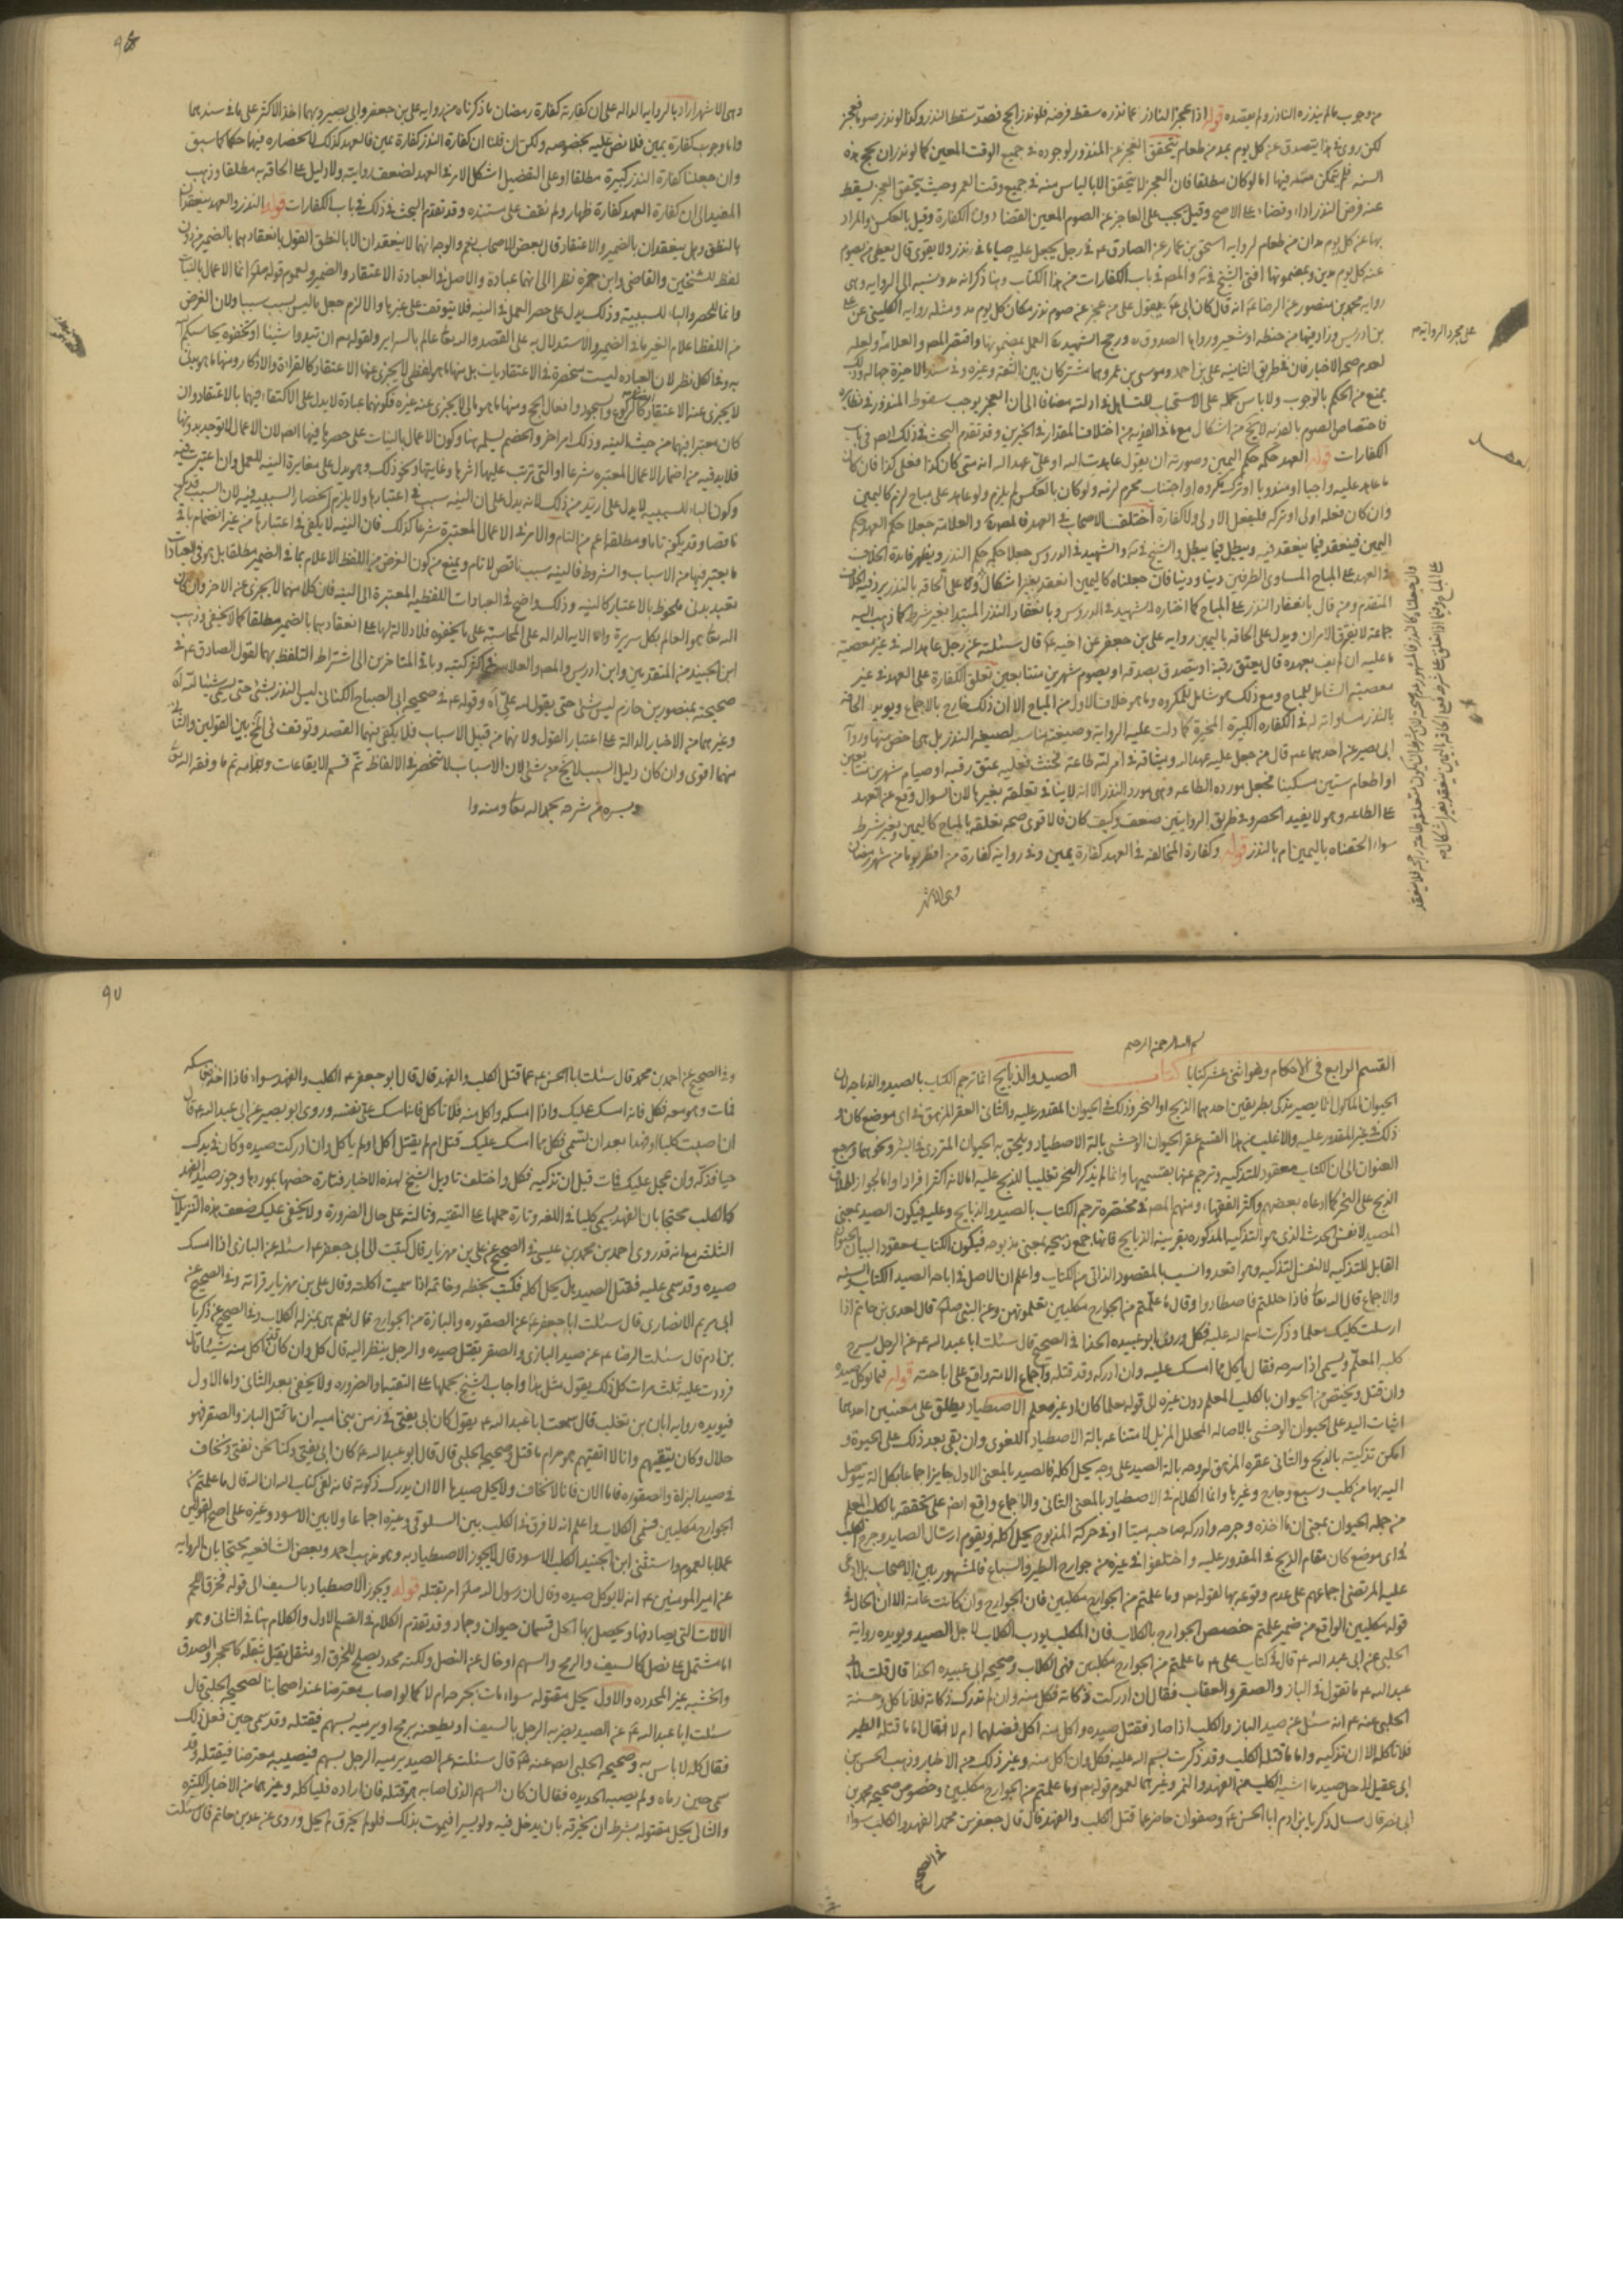 من وجوب ما لم ينذره الناذر ولم يعتقده قوله اذا عجز الناذر عما نذره سقط فرضه فلو نذر الحج فصد سقط النذر وكذا لو نذر صوما فعجز
لكن روى في هذا يتصدق عن كل يوم بمد من طعام يتحقق العجز عن المنذور لوجوده في جميع الوقت المعين كما لو نذر ان يحج هذه
السنه فلم يتمكن منه فيها اما لو كان مطلقا فان العجز لا يتحقق الا بالياس منه في جميع وقت العمر وحيث يتحقق العجز يسقط
عنه فرض النذر اداء وقضاء على الاصح وقيل يجب على العاجز عن الصوم المعين القضا دون الكفارة وقيل بالعكس والمراد
بها عن كل يوم مدان من طعام لروايه اسحق بن عمار عن الصادق ع في رجل يجعل عليه صياما في نذر ولا يقوى قال يعطى من يصوم
عنه كل يوم مدين وبمضمونها افتى الشيخ في يه والمص في باب الكفارات من هذا الكتاب وهنا ذكر انه مد ونسبه الى الروايه وهى
روايه محمد بن منصور عن الرضا ع انه قال كان ابى ع يقول على من عجز عن صوم نذر مكان كل يوم مد ومثله روايه الكلينى عن على
بن ادريس وزاد فيها من حنطه او شعير ورواها الصدوق ره ورجح الشهيد ره العمل بمضمونها واقتصر المص والعلامه ولعله
على مجرد الروايه
لعدم صحه الاخبار فان في طريق الثانيه على بن احمد وموسى بن عمر وهما مشتركان بين الثقه وغيره وفي سند الاخيرة جهاله وذلك
يمنع من الحكم بالوجوب ولا باس بحمله على الاستحباب للتساهل في ادلته مضافا الى ان العجز يوجب سقوط المنذور في نظايره
فاختصاص الصوم بالفديه لا يخ من اشكال مع ما في الفديه من اختلاف المقدار في الخبرين وقد تقدم البحث في ذلك ايضا في باب
الكفارات قوله العهد حكمه حكم اليمين وصورته ان يقول عاهدت الله او على عهد الله انه متى كان كذا فعلى كذا فان كان
ما عاهد عليه واجبا او مندوبا او ترك مكروه او اجتناب محرم لزمه ولو كان بالعكس لم يلزم ولو عاهد على مباح لزم كاليمين
وان كان فعله اولى او تركه فليفعل الاولى ولا كفارة اختلف الاصحاب في العهد فالمص ره والعلامه جعلا حكم العهد حكم
اليمين فينعقد فيما ينعقد فيه ويبطل فيما يبطل والشيخ في يه والشهيد في الدروس جعلا حكمه حكم النذر ويظهر فايدة الخلاف
في العهد على المباح المتساوى الطرفين دينا ودنيا فان جعلناه كاليمين انعقد بغير اشكال وكا على الحاقه بالنذر يرد فيه الخلاف
المتقدم ومن قال بانعقاد النذر على المباح كما اختاره الشهيد في الدروس وبانعقاد النذر المبتدا بغير شرط كما ذهب اليه
جماعة لا يفرق الامران ويدل على الحاقه باليمين روايه على بن جعفر عن اخيه ع قال سئلته عن رجل عاهد الله في غير معصية
ما عليه ان لم يف بعهده قال يعتق رقبة او يتصدق بصدقه او يصوم شهرين متتابعين تعلق الكفارة على العهد في غير
معصيته الشامل للمباح ومع ذلك هو شامل للمكروه وما هو خلاف الاولى من المباح الا ان ذلك خارج بالاجماع ويويد الحاقه
بالنذر مساواته له في الكفاره الكبيرة المخيرة كما دلت عليه الروايه وصيغته مناسبه لصيغه النذر بل هى اخص منها ورواية
ابى بصير عن احدهما ع قال من جعل عليه عهد الله وميثاقه في امر لله طاعة فحنث فعليه عتق رقبه او صيام شهرين متتابعين
او اطعام ستين مسكينا فجعل مورده الطاعه وهى مورد النذر الا انه لا ينافي تعلقه بغيرها لان السوال وقع عن العهد
على الطاعه وهو لا يفيد الحصر وفي طريق الروايتين ضعف وكيف كان فالاقوى صحه تعلقه بالمباح كاليمين وبغير شرط
سواء الحقناه باليمين ام بالنذر قوله وكفارة المخالفه في العهد كفارة يمين وفي روايه كفارة من افطر يوما من شهر رمضان
وهى الاشهر
وهى الاشهر اراد بالروايه الداله على ان كفارته كفارة رمضان ما ذكرناه من روايه على بن جعفر وابى بصير وبهما اخذ الاكثر على ما في سندهما
واما وجوب كفارة يمين فلا نص عليه بخصوصه ولكن ان قلنا ان كفارة النذر كفارة يمين فالعهد كذلك لانحصاره فيها حكما كما سبق
وان جعلنا كفارة النذر كبيرة مطلقا او على التفصيل اشكل الامر في العهد لضعف روايته ولا دليل على الحاقه به مطلقا وذهب
المفيد الى ان كفارة العهد كفارة ظهار ولم نقف على مستنده وقد تقدم البحث في ذلك في باب الكفارات قوله النذر والعهد ينعقدان
بالنطق وهل ينعقدان بالضمير والاعتقاد قال بعض الاصحاب نعم والوجه انهما لا ينعقدان الا بالنطق القول بانعقادهما بالضمير من دون
لفظ للشيخين والقاضى وابن حمزه نظرا الى انهما عبادة والاصل في العبادة الاعتقاد والضمير ولعموم قوله ص انما الاعمال بالنيات
وانما للحصر والباء للسببيه وذلك يدل على حصر العمل في النيه فلا يتوقف على غيرها والا لزم جعل ما ليس بسبب سببا ولان الغرض
من اللفظ اعلام الغير ما في الضمير والاستدلال به على القصد والله تعالى عالم بالسراير ولقوله تعالى ان تبدوا شيئا او تخفوه يحاسبكم
به وفي الكل نظر لان العباده ليست منحصرة في الاعتقاديات بل منها ما هو لفظى لا يجزى عنها الاعتقاد كالقراءة والاذكار ومنها ما هو بدنى
لا يجزى عنه الاعتقاد كالركوع والسجود وافعال الحج ومنها ما هو مالى لا يجزى عنه غيره فكونهما عبادة لا يدل على الاكتفاء فيهما بالاعتقاد وان
كان معتبرا فيهما من حيث النيه وذلك امر اخر والخصم يسلمه هنا وكون الاعمال بالنيات على حصرها فيها
فلا بد فيه من اضمار الاعمال المعتبره شرعا او التى ترتب عليها اثرها وغايتها ونحو ذلك وهو يدل على مغايرة النيه للعمل وان اعتبرت فيه
وكون الباء للسببيه لا يدل على ازيد من ذلك لانه يدل على ان النيه سبب في اعتبارها ولا يلزم انحصار السببيه فيه لان السبب قد يكون
ناقصا وقد يكون تاما ومطلقا اعم من التام والامر في الاعمال المعتبرة شرعا كذلك فان النيه لا يكفى في اعتبارها من غير انضمام باقى
ما يعتبر فيها من الاسباب والشروط فالنيه سبب ناقص لا تام ونمنع من كون الغرض من اللفظ الاعلام بما في الضمير مطلقا بل هو في العبادات
تعبد بدنى ملحوظ بالاعتبار كالنيه وذلك واضح في العبادات اللفظيه المعتبرة الى النيه فان كلا منهما لا يجزى عن الاخر وان كان
الله تعالى هو العالم بكل سريرة واما الايه الداله على المحاسبة على ما يخفوه فلا دلالة لها على انعقادهما بالضمير مطلقا كما لا يخفى وذهب
ابن الجنيد من المتقدمين وابن ادريس والمص والعلامه في اكثر كتبه وباقى المتاخرين الى اشتراط التلفظ بهما لقول الصادق ع في
صحيحة منصور بن حازم ليس بشئ حتى يقول لله على آه وقوله ع في صحيحه ابى الصباح الكنانى ليس النذر بشئ حتى يسمى شيئا لله آه
وغيرهما من الاخبار الدالة على اعتبار القول ولانهما من قبيل الاسباب فلا يكفى فيهما القصد وتوقف في المخ بين القولين والثانى
منهما اقوى وان كان دليل السبب لا يخ من شئ لان الاسباب لا تنحصر في الالفاظ تم قسم الايقاعات وبتمامه تم ما وفقه الله تعالى
ويسره من شرحه بحمد الله تعالى ومنه
بسم الله الرحمن الرحيم
القسم الرابع في الاحكام وهو اثنى عشر كتابا كتاب الصيد والذبايح انما ترجم الكتاب بالصيد والذباحه لان
الحيوان الماكول انما يصير مذكى بطريقين احدهما الذبح او النحر وذلك في الحيوان المقدور عليه والثانى العقر المزهق في اى موضع كان و
ذلك في غير المقدور عليه والاغلب من هذا القسم عقر الحيوان الوحشى بالة الاصطياد ويلحق به الحيوان المتردى في البئر ونحوها ومرجع
العنوان الى ان الكتاب معقود للتذكيه وترجم عنها بقسميها وانما لم يذكر النحر تغليبا للذبح عليه اما لانه اكثر افرادا واما لجواز اطلاق
الذبح على النحر كما ادعاه بعضهم واكثر الفقهاء ومنهم المص في مختصره ترجم الكتاب بالصيد والذبايح وعليه فيكون الصيد بمعنى
المصيد لا نفس الحدث الذى هو التذكيه المذكوره بقرينه الذبايح فانها جمع ذبيحه بمعنى مذبوحه فيكون الكتاب معقودا لبيان الحيوان
القابل للتذكيه لا لنفس التذكيه وهو اقعد وانسب بالمقصود الذاتى من الكتاب واعلم ان الاصل في اباحه الصيد الكتاب والسنه
والاجماع قال الله تعالى فاذا حللتم فاصطادوا وقال وما علمتم من الجوارح مكلبين تعلمونهن وعن النبى ص انه قال لعدى بن حاتم اذا
ارسلت كلبك المعلم وذكرت اسم الله عليه فكل وروى ابو عبيده الحذا في الصحيح قال سئلت ابا عبد الله ع عن الرجل يسرح
كلبه المعلم ويسمى اذا سرحه فقال ياكل مما امسك عليه وان ادركه وقد قتله واجماع الامه واقع على اباحته قوله فيما يوكل صيده
وان قتل ويختص من الحيوان بالكلب المعلم دون غيره الى قوله معلما كان او غير معلم الاصطياد يطلق على معنيين احدهما
اثبات اليد على الحيوان الوحشى بالاصاله المحلل المزيل لامتناعه بالة الاصطياد اللغوى وان بقى بعد ذلك على الحيوة و
امكن تذكيته بالذبح والثانى عقره المزهق لروحه بالة الصيد على وجه يحل اكله فالصيد بالمعنى الاول جايز اجماعا بكل الة يتوصل
اليه بها من كلب وسبع وجارح وغيرها وانما الكلام في الاصطياد بالمعنى الثانى والاجماع واقع ايضا على تحققه بالكلب المعلم
من جمله الحيوان بمعنى ان ما اخذه وجرحه وادركه صاحبه ميتا او في حركة المذبوح يحل اكله ويقوم ارسال الصايد وجرح الكلب
في اى موضع كان مقام الذبح في المقدور عليه واختلفوا في غيره من جوارح الطير والسباع فالمشهور بين الاصحاب بل ادعى
عليه المرتضى اجماعهم على عدم وقوعه بها لقوله تعالى وما علمتم من الجوارح مكلبين فان الجوارح وان كانت عامة الا ان الحال في
قوله مكلبين الواقع من ضمير علمتم خصص الجوارح بالكلاب فان المكلب مودب الكلاب لاجل الصيد ويويده رواية
الحلبى عن ابى عبد الله ع قال في كتاب على ع ما علمتم من الجوارح مكلبين فهى الكلاب وصحيحه ابى عبيده الحذا قال قلت لابى
عبد الله ع ما تقول في الباز والصقر والعقاب فقال ان ادركت ذكاته فكل منه وان لم تدرك ذكاته فلا تاكل وحسنة
الحلبى عنه ع انه سئل عن صيد الباز والكلب اذا صاد فقتل صيده واكل منه اكل فضلهما ام لا فقال اما ما قتله الطير
فلا تاكله الا ان تذكيه واما ما قتله الكلب وقد ذكرت اسم الله عليه فكل وان اكل منه وغير ذلك من الاخبار وذهب الحسن بن
ابى عقيل الى حل صيد ما اشبه الكلب من الفهد والنمر وغيرهما لعموم قوله تعالى وما علمتم من الجوارح مكلبين وخصوص صحيحه محمد بن
ابى نصر قال سال زكريا بن ادم ابا الحسن ع وصفوان حاضر عما قتل الكلب والفهد قال قال جعفر بن محمد الفهد والكلب سواء
في الصحيح
وفي الصحيح عن احمد بن محمد قال سئلت ابا الحسن ع عما قتل الكلب والفهد قال قال ابو جعفر ع الكلب والفهد سواء فاذا اخذ فامسكه
فمات وهو معه فكل فانه امسك عليك واذا امسكه واكل منه فلا تاكل فانما امسك على نفسه وروى ابو بصير عن ابى عبد الله ع قال
ان اصبت كلبا او فهدا بعد ان تسمى فكل مما امسك عليك قتل ام لم يقتل اكل او لم ياكل وان ادركت صيده وكان في يدك
حيا فذكه وان عجل عليك فمات قبل ان تذكيه فكل واختلف تاويل الشيخ لهذه الاخبار فتارة خصها بموردها وجوز صيد الفهد
كالكلب محتجا بان الفهد يسمى كلبا في اللغه وتارة حملها على التقيه وثالثه على حال الضرورة ولا يخفى عليك ضعف هذه التنزيلات
الثلثه مع انه قد روى احمد بن محمد بن عيسى في الصحيح عن على بن مهزيار قال كتبت الى ابى جعفر ع اسئله عن البازى اذا امسك
صيده وقد سمى عليه فقتل الصيد هل يحل اكله فكتب بخطه وخاتمه اذا سميت اكلته وقال على بن مهزيار قراته وفي الصحيح عن
ابى مريم الانصارى قال سئلت ابا جعفر ع عن الصقوره والبازة من الجوارح قال نعم هى بمنزله الكلاب وفي الصحيح عن زكريا
بن ادم قال سئلت الرضا ع عن صيد البازى والصقر يقتل صيده والرجل ينظر اليه قال كل وان كان قد اكل منه شيئا قال
فرددت عليه ثلث مرات كل ذلك يقول مثل هذا واجاب الشيخ بحملها على التقيه او الضروره ولا يخفى بعد الثانى واما الاول
فيويده روايه ابان بن تغلب قال سمعت ابا عبد الله ع يقول كان ابى يفتى في زمن بنى اميه ان ما قتل الباز والصقر فهو
حلال وكان يتقيهم وانا لا اتقيهم هو حرام ما قتل وصحيحه الحلبى قال قال ابو عبد الله ع كان ابى يفتى وكنا نحن نفتى ونخاف
في صيد البزاة والصقوره فاما الان فانا لا نخاف ولا يحل صيدها الا ان يدرك ذكوته فانه لفى كتاب الله ان الله قال وما علمتم من
الجوارح مكلبين فهى الكلاب واعلم انه لا فرق في الكلب بين السلوقى وغيره اجماعا ولا بين الاسود وغيره على اصح القولين
عملا بالعموم واستثنى ابن الجنيد الكلب الاسود قال لا يجوز الاصطياد به وهو مذهب احمد وبعض الشافعيه محتجا بان الروايه
عن امير المومنين ع انه لا يوكل صيده وقال ان رسول الله ص امر بقتله قوله ويجوز الاصطياد بالسيف الى قوله فخرق اللحم
الالات التى يصاد بها ويحصل بها الحل قسمان حيوان وجماد وقد تقدم الكلام في القسم الاول والكلام هنا في الثانى وهو
اما مشتمل على نصل كالسيف والرمح والسهم او خال عن النصل ولكنه محدد يصلح للخرق او مثقل يقتل بثقله كالحجر والبندق
والخشبه غير المحدده والاول يحل مقتوله سواء مات بجرحه ام لا كما لو اصاب معترضا عند اصحابنا لصحيحه الحلبى قال
سئلت ابا عبد الله ع عن الصيد يضربه الرجل بالسيف او يطعنه برمح او يرميه بسهم فيقتله وقد سمى حين فعل ذلك
فقال كله لا باس به وصحيحه الحلبى ايضا عنه ع قال سئلته عن الصيد يرميه الرجل بسهم فيصيبه معترضا فيقتله وقد
سمى حين رماه ولم يصبه الحديده فقال ان كان السهم الذى اصابه هو قتله فان اراده فلياكله وغيرهما من الاخبار الكثيره
والثانى يحل مقتوله بشرط ان يخرقه بان يدخل فيه ولو يسيرا فيموت بذلك فلو لم يخرق لم يحل وروى عن عدى بن حاتم قال سئلت